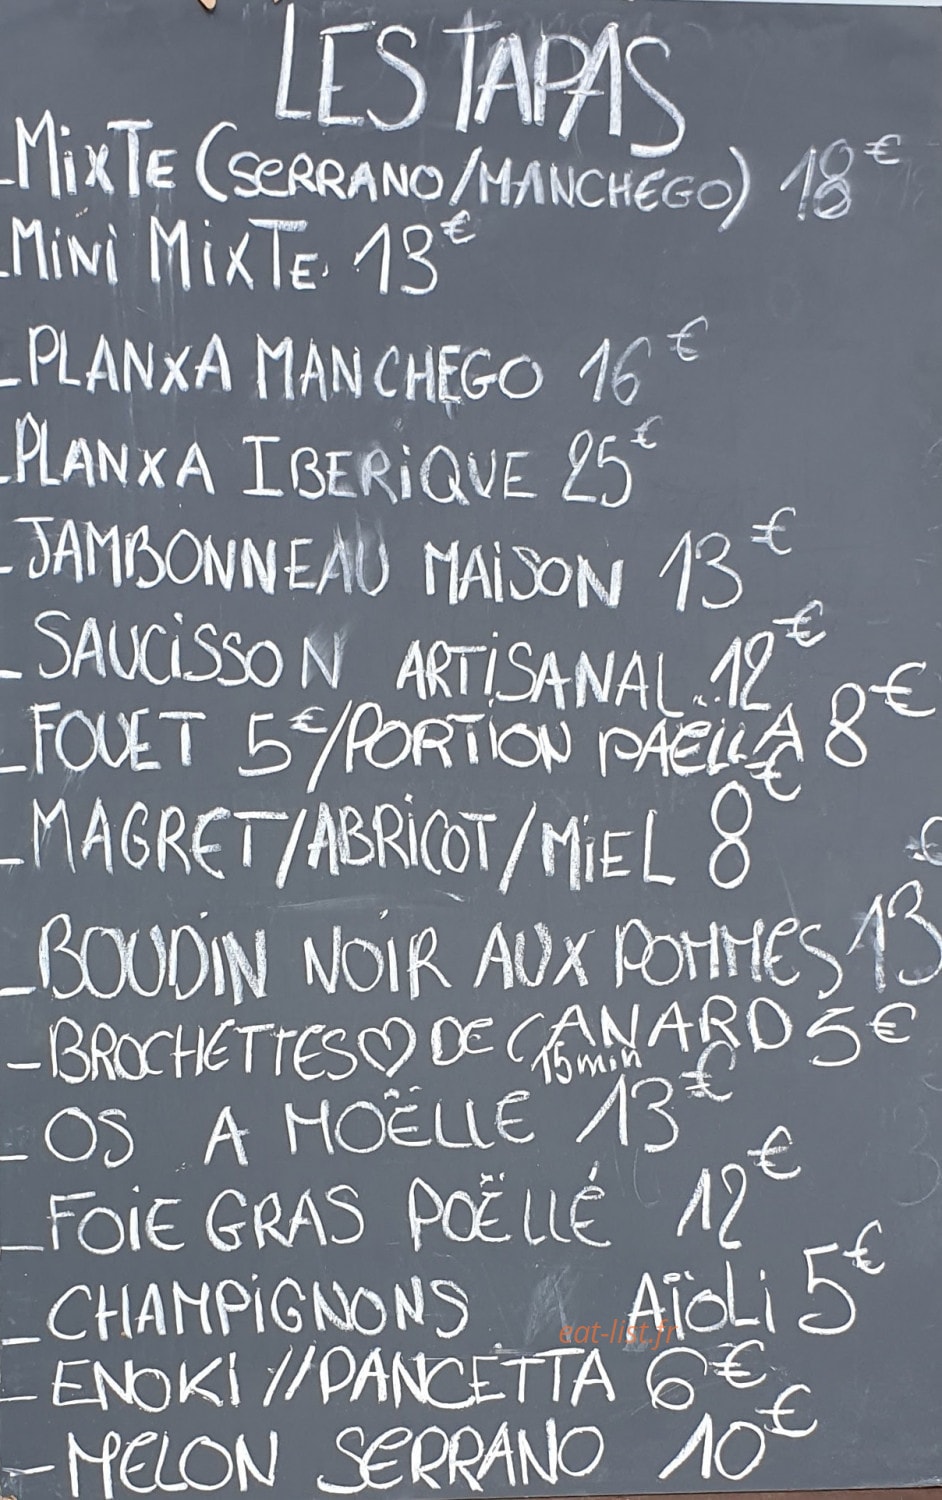 LES TAPAS
-MixTE (SERRANO/MANCHEGO) 18€
-MiNi MixTE 13€
-PLANXA MANCHEGO 16€
-PLANXA IBERiQUE 25€
-JAMBONNEAU MAiSON 13€
-SAUCiSSON ARTiSANAL 12€
-FOUET 5€/PORTION PAËLLA 8€
-MAGRET/ABRiCOT/MiEL 8€
-BOUDiN NOiR AUX POMMES 13€
-BROCHETTES♡ DE CANARD 5€
15min
-OS A MOËLLE 13€
-FOiE GRAS POËLLÉ 12€
-CHAMPiGNONS AÏOLi 5€
eat-list.fr
-ENOKi //PANCETTA 6€
-MELON SERRANO 10€